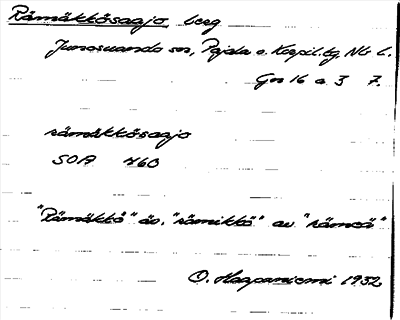 Rämäkkösaajo berg
Junosuando sn, Pajala o. Korpil. tg, Nb l.
Gn 16 a 3 7.
rämäkkösaajo
SOA 460
"Rämäkkö" äv. "rämikkö" av "rämeä"
O. Haapaniemi 1932